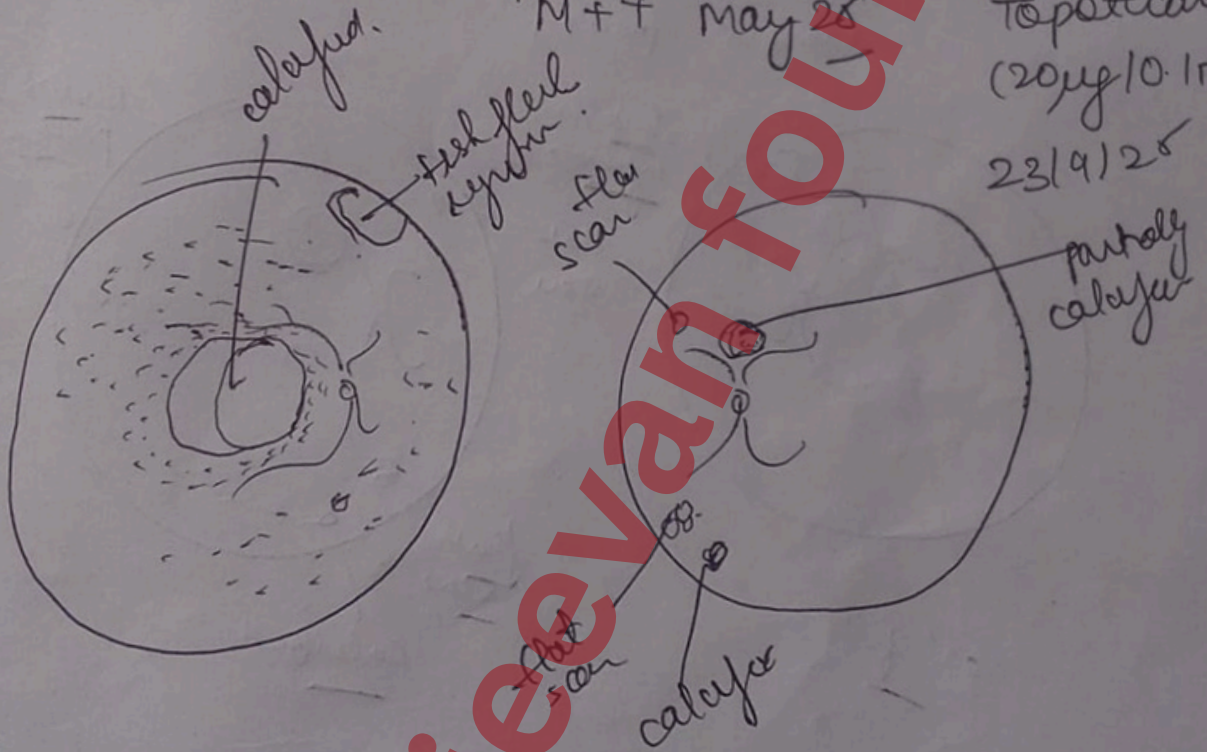 M++ May 25
Topotecan
(20µg/0.1m
23/9/25
calcified.
fish flesh
flat
scar
partially
calcified
flat
scar
calcified
eevan fou